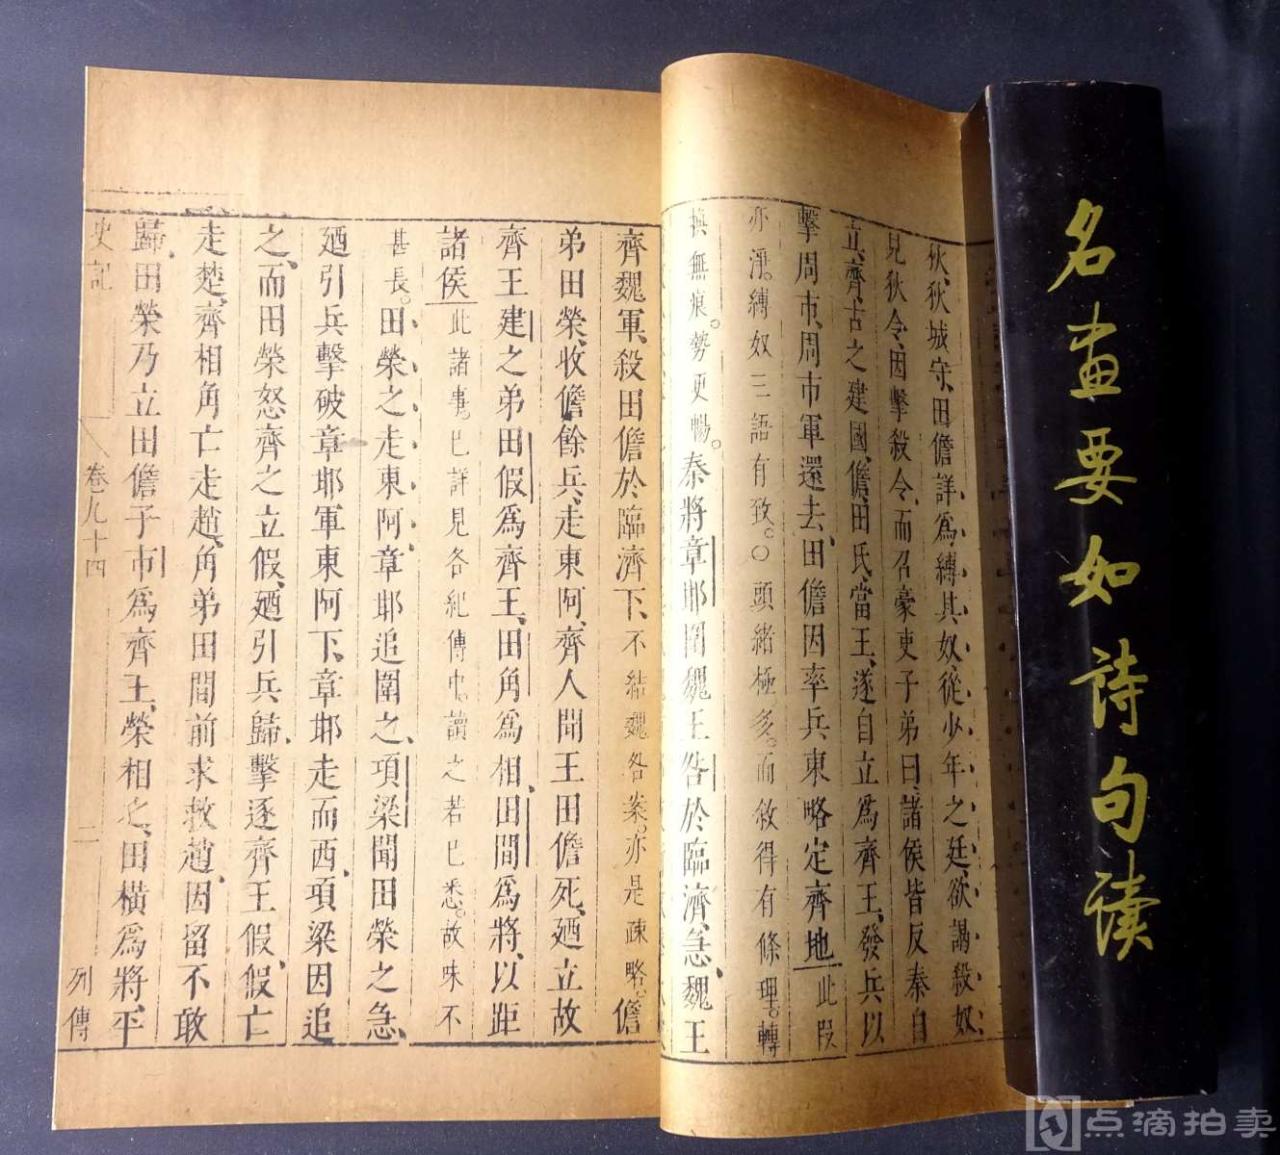 名畫要如詩句读
狄、狄城守、田儋詳為縛其奴、從少年之廷、欲謁殺奴、
見狄令、因擊殺令、而召豪吏子弟曰、諸侯皆反秦自
立、齊、古之建國、儋、田氏、當王、遂自立爲齊王、發兵以
擊周市、周市軍還去、田儋因率兵東略定齊地此段
亦淨。縛奴三語有致。○頭緒極多。而敘得有條理。轉
換無痕。勢更暢。秦將章邯圍魏王咎於臨濟、急、魏王
齊魏軍、殺田儋於臨濟下、不結魏咎案。亦是疎略。儋
弟田榮、收儋餘兵、走東阿、齊人聞王田儋死、廼立故
齊王建之弟田假爲齊王、田角爲相、田間爲將、以距
諸侯此諸事。已詳見各紀傳中。讀之若已悉。故味不
甚長。田榮之走東阿、章邯追圍之、項梁聞田榮之急、
廼引兵擊破章邯軍東阿下、章邯走而西、項梁因追
之、而田榮怒齊之立假、廼引兵歸、擊逐齊王假、假亡
走楚、齊相角亡走趙、角弟田間前求救趙、因留不敢
歸、田榮乃立田儋子市爲齊王、榮相之、田橫爲將、平
史記 卷九十四 二 列傳
点滴拍卖